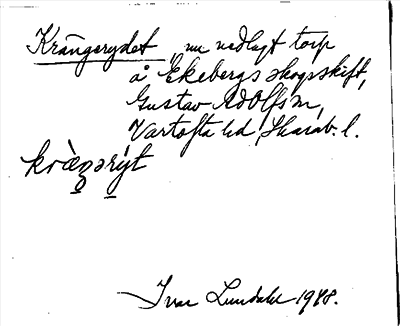 Krängerydet, nu nedlagt torp
å Ekebergs skogsskift,
Gustav Adolfs sn,
Vartofta hd Skarab. l.
kràŋ̣ərỵt
Ivar Lundahl 1948.